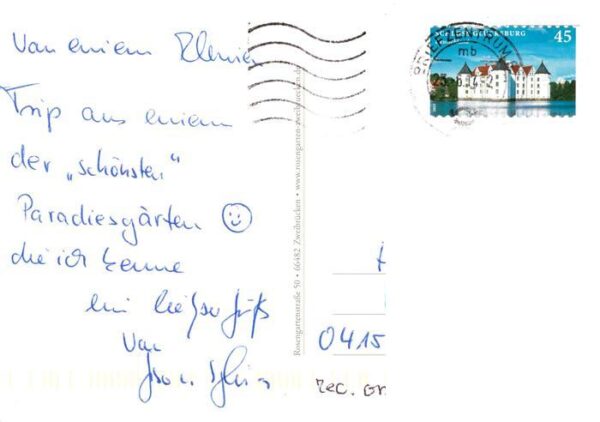 Von einem kleinen
Trip aus einem
der „schönsten“
Paradiesgärten
die ich kenne
ein lieber Gruß
von
Rosengartenstraße 50 • 66482 Zweibrücken • www.rosengarten-zweibruecken.de
SCHLOSS GLÜCKSBURG
45
BRIEFZENTRUM
mb
0415
rec. on